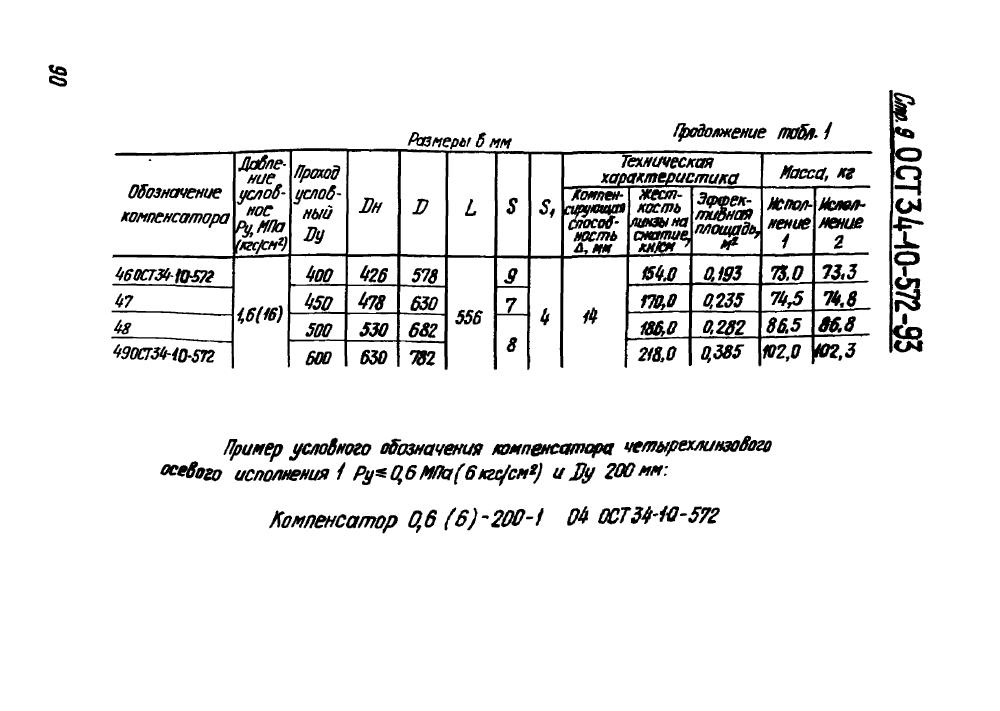 90
Стр. 9 ОСТ34-10-572-93
Размеры в мм
Продолжение табл. 1
Обозначение
компенсатора
Давле-
ние
услов-
ное
Ру, МПа
(кгс/см²)
Проход
услов-
ный
Ду
Dн
D
L
S
S₁
Техническая
характеристика
Компен-
сирующая
способ-
ность
Δ, мм
Жест-
кость
линзы на
сжатие,
кн/см
Эффек-
тивная
площадь,
м²
Масса, кг
Испол-
нение
1
Испол-
нение
2
46 ОСТ34-10-572 1,6(16) 400 426 578 556 9 4 14 154,0 0,193 73,0 73,3
47 450 478 630 7 170,0 0,235 74,5 74,8
48 500 530 682 8 186,0 0,282 86,5 86,8
49 ОСТ34-10-572 600 630 782 218,0 0,385 102,0 102,3
Пример условного обозначения компенсатора четырехлинзового
осевого исполнения 1 Ру≤0,6 МПа (6 кгс/см²) и Ду 200 мм:
Компенсатор 0,6 (6)-200-1 04 ОСТ34-10-572